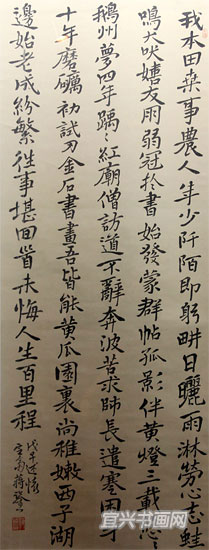 我本田桑事農人年少阡陌即躬畊日曬雨淋勞心志蛙
鳴犬吠嬉友雨弱冠於書始發蒙群帖孤影伴黃燈三載
鵝州夢四年踽〻紅廟僧訪道不辭奔波苦求師長遣寒困身
十年磨礪初試刀金石書畫吾皆能黃瓜園裏尚稚嫩西子湖
邊始老成紛繁往事堪回首未悔人生百里程
述懷
蔣
宜兴书画网